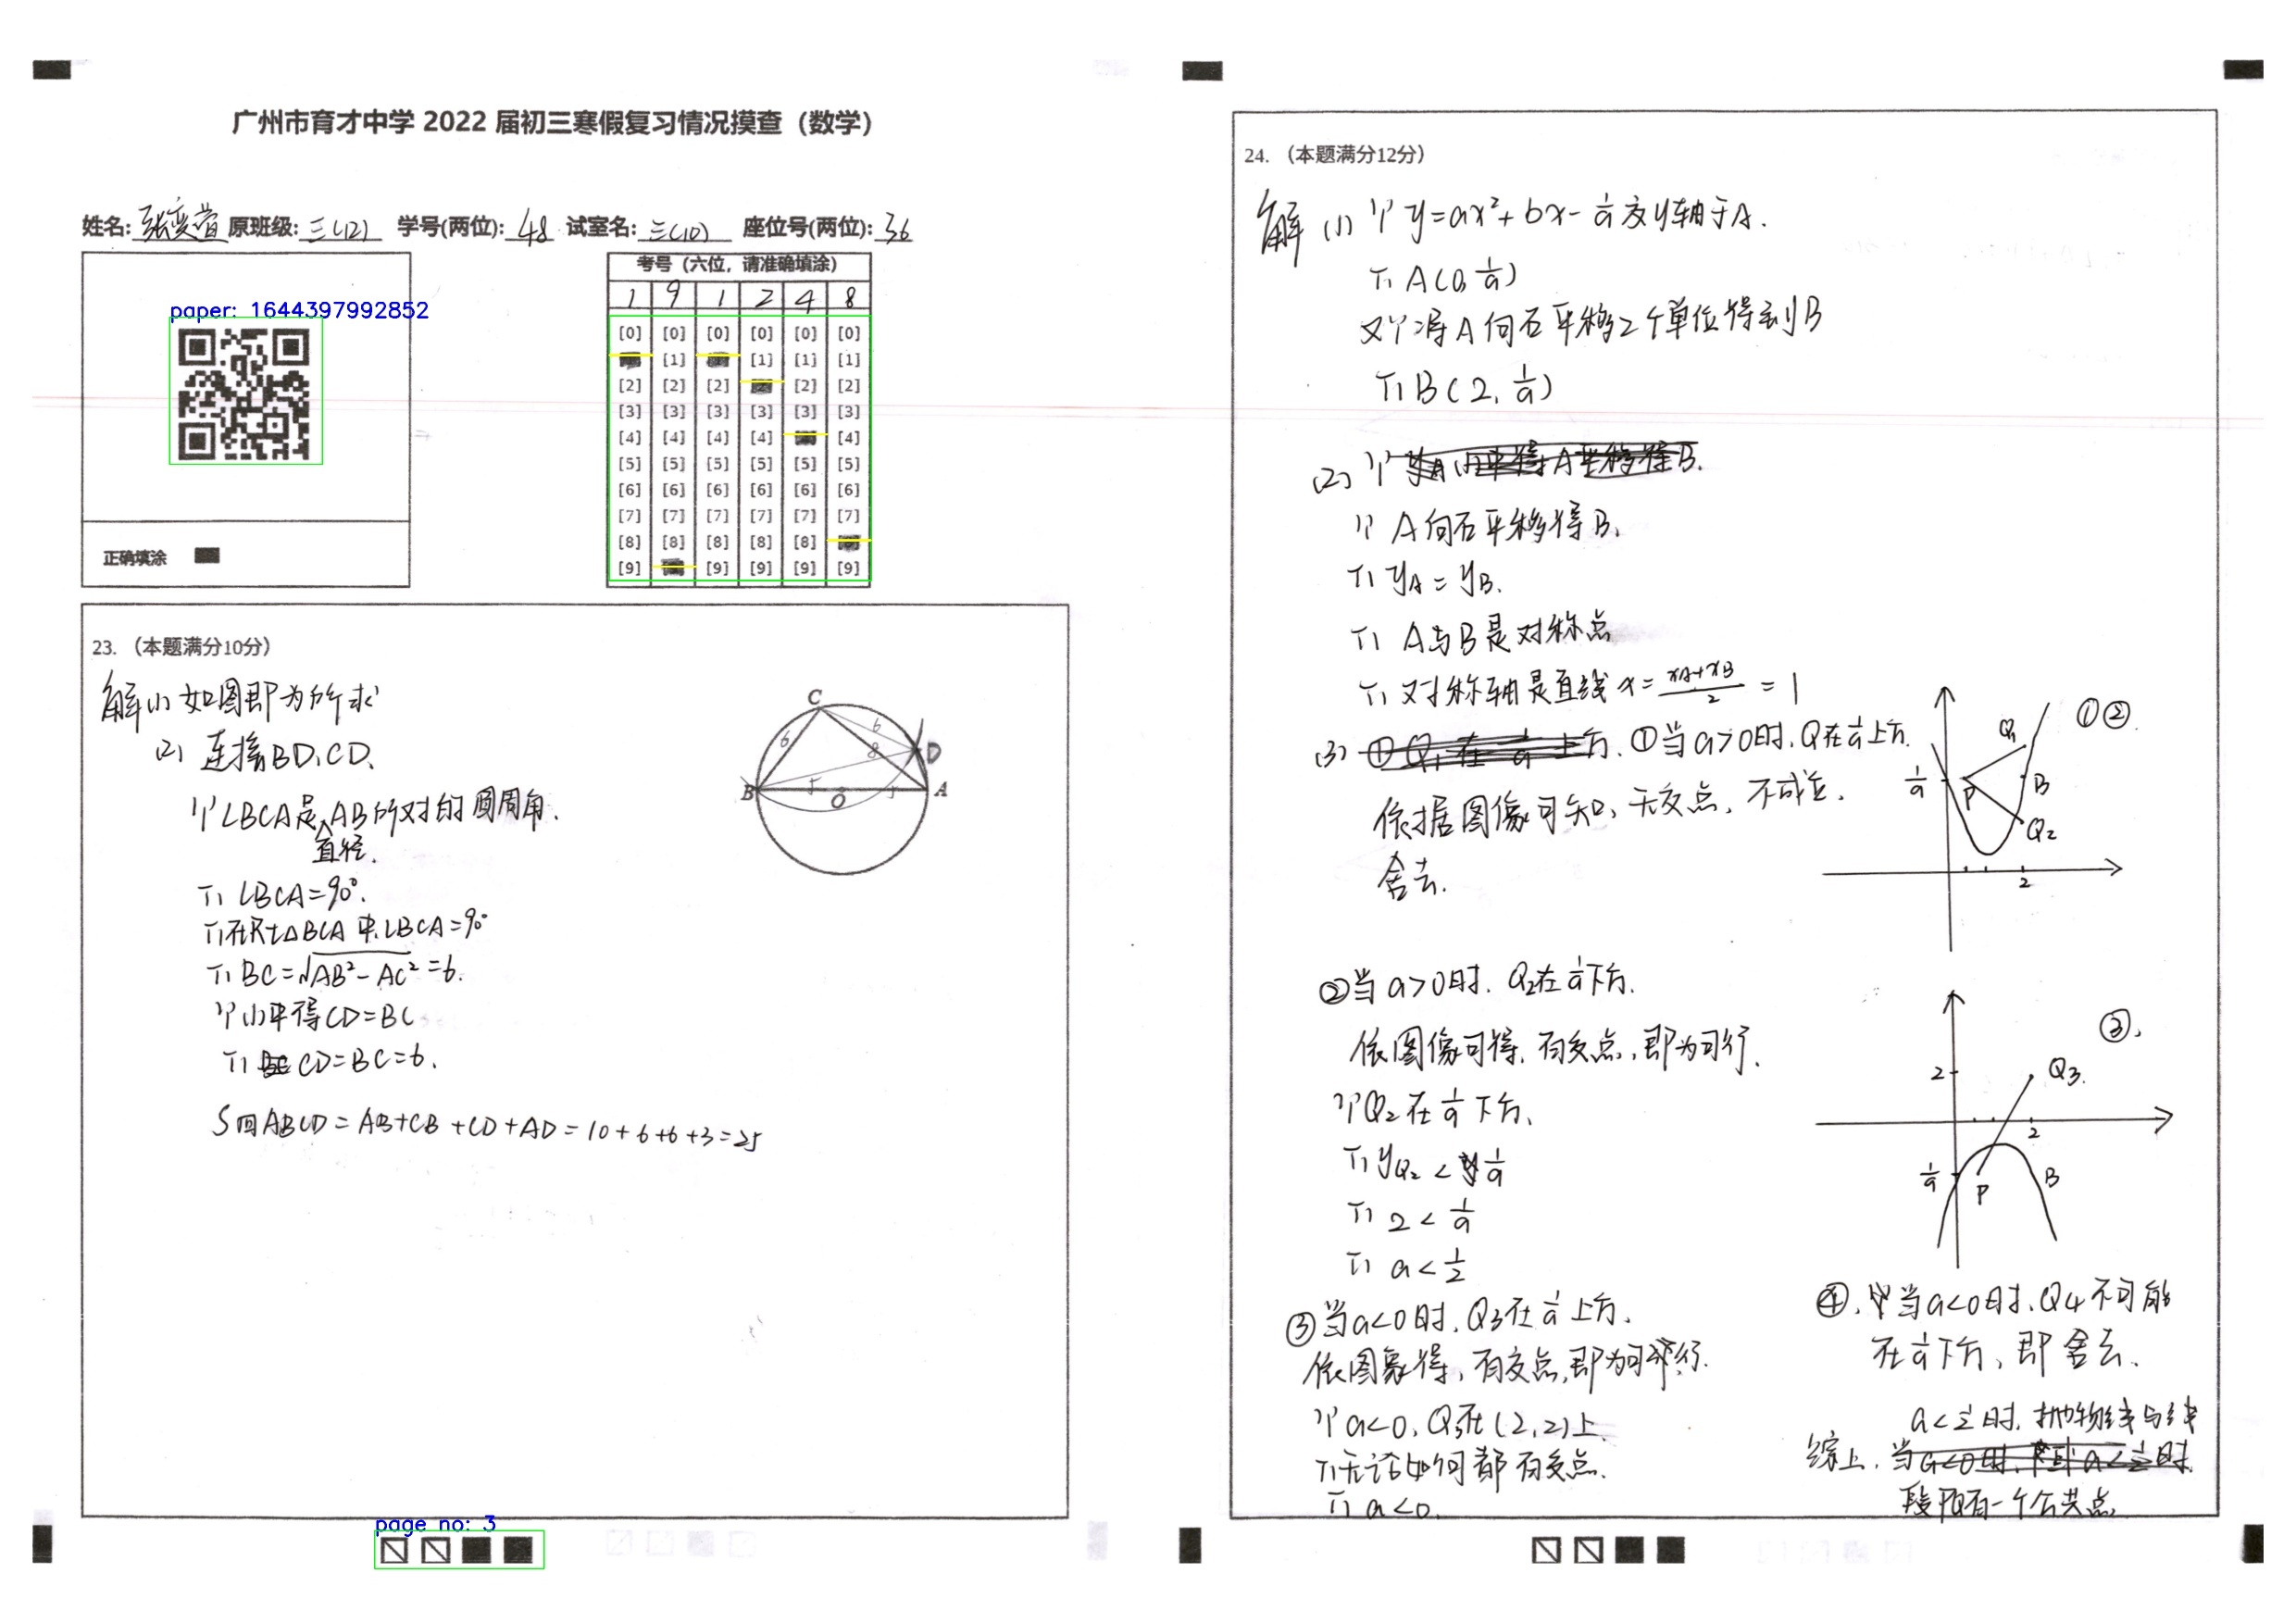 广州市育才中学 2022 届初三寒假复习情况摸查（数学）
姓名: 原班级: 三(12) 学号(两位): 48 试室名: 三(10) 座位号(两位): 36
paper: 1644397992852
正确填涂
考号（六位，请准确填涂）
1 9 1 2 4 8
[0] [0] [0] [0] [0] [0]
[1] [1] [1] [1]
[2] [2] [2] [2] [2]
[3] [3] [3] [3] [3] [3]
[4] [4] [4] [4] [4]
[5] [5] [5] [5] [5] [5]
[6] [6] [6] [6] [6] [6]
[7] [7] [7] [7] [7] [7]
[8] [8] [8] [8] [8]
[9] [9] [9] [9] [9]
23. （本题满分10分）
解(1) 如图即为所求
(2) 连接BD、CD、
∵∠BCA是直径AB所对的圆周角.
∴∠BCA=90°.
∴在Rt△BCA中,∠BCA=90°
∴BC=√(AB²-AC²)=6.
∵(1)中得CD=BC
∴CD=BC=6.
S四ABCD=AB+CB+CD+AD=10+6+6+3=25
C
6
6
8
D
B
5
O
5
A
page no: 3
24. （本题满分12分）
解 (1) ∵y=ax²+bx-1/a交y轴于A.
∴A(0, 1/a)
又∵将A向右平移2个单位得到B
∴B(2, 1/a)
(2) ∵
∵A向右平移得B.
∴yA=yB.
∴A与B是对称点
∴对称轴是直线x=(xA+xB)/2=1
(3) ①当a>0时,Q在1/a上方.
依据图像可知,无交点,不成立.
舍去.
①②
Q1
1/a
P
B
Q2
2
②当a>0时. Q2在1/a下方.
依图像可得,有交点,即为可行.
∵Q2在1/a下方.
∴yQ2<1/a
∴2<1/a
∴a<1/2
③.
2
Q3.
2
1/a
P
B
③当a<0时,Q3在1/a上方.
依图象得,有交点,即为可行.
∵a<0,Q3在(2,2)上.
∴无论如何都有交点.
∴a<0.
④.当a<0时,Q4不可能
在1/a下方,即舍去.
a<1/2时,抛物线与线
综上,当
段PQ有一个公共点